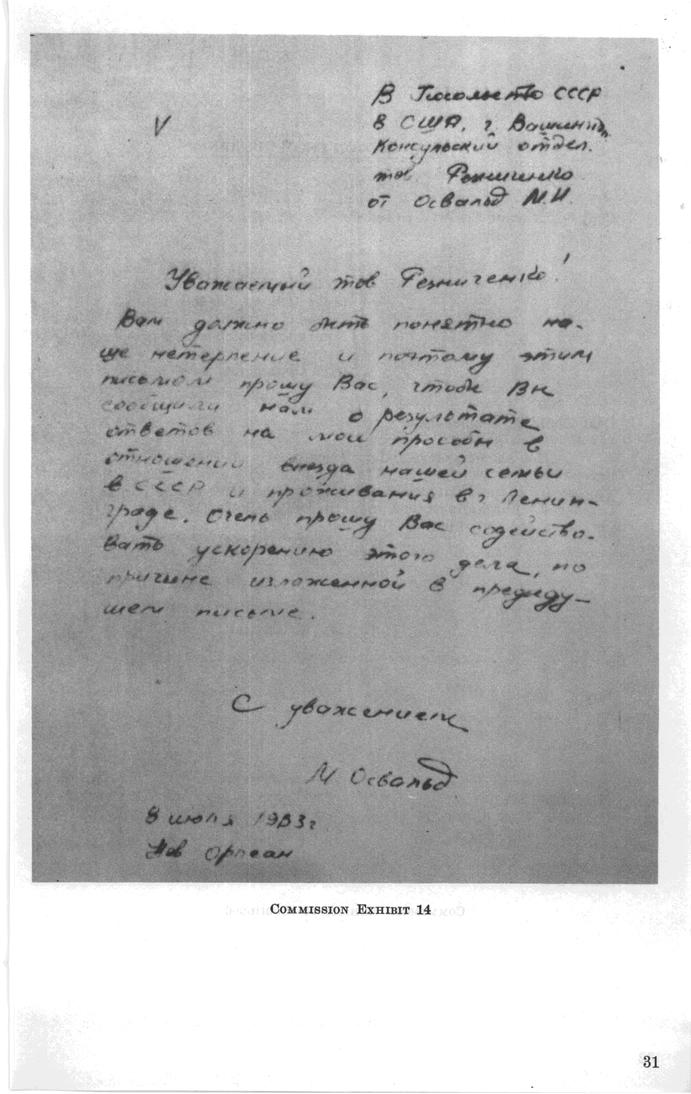 V
В Посольство СССР
в США, г. Вашингт.
Консульский отдел.
тов. Резниченко
от Освальд М.Н.
Уважаемый тов Резниченко!
Вам должно быть понятно на-
ше нетерпение и поэтому этим
письмом прошу Вас, чтобы Вы
сообщили нам о результате
ответов на мои просьбы в
отношении въезда нашей семьи
в СССР и проживания в г Ленин-
граде. Очень прошу Вас содейство-
вать ускорению этого дела, по
причине изложенной в предиду-
щем письме.
С уважением
М Освальд
8 июля 1963 г
Нов Орлеан
COMMISSION EXHIBIT 14
31